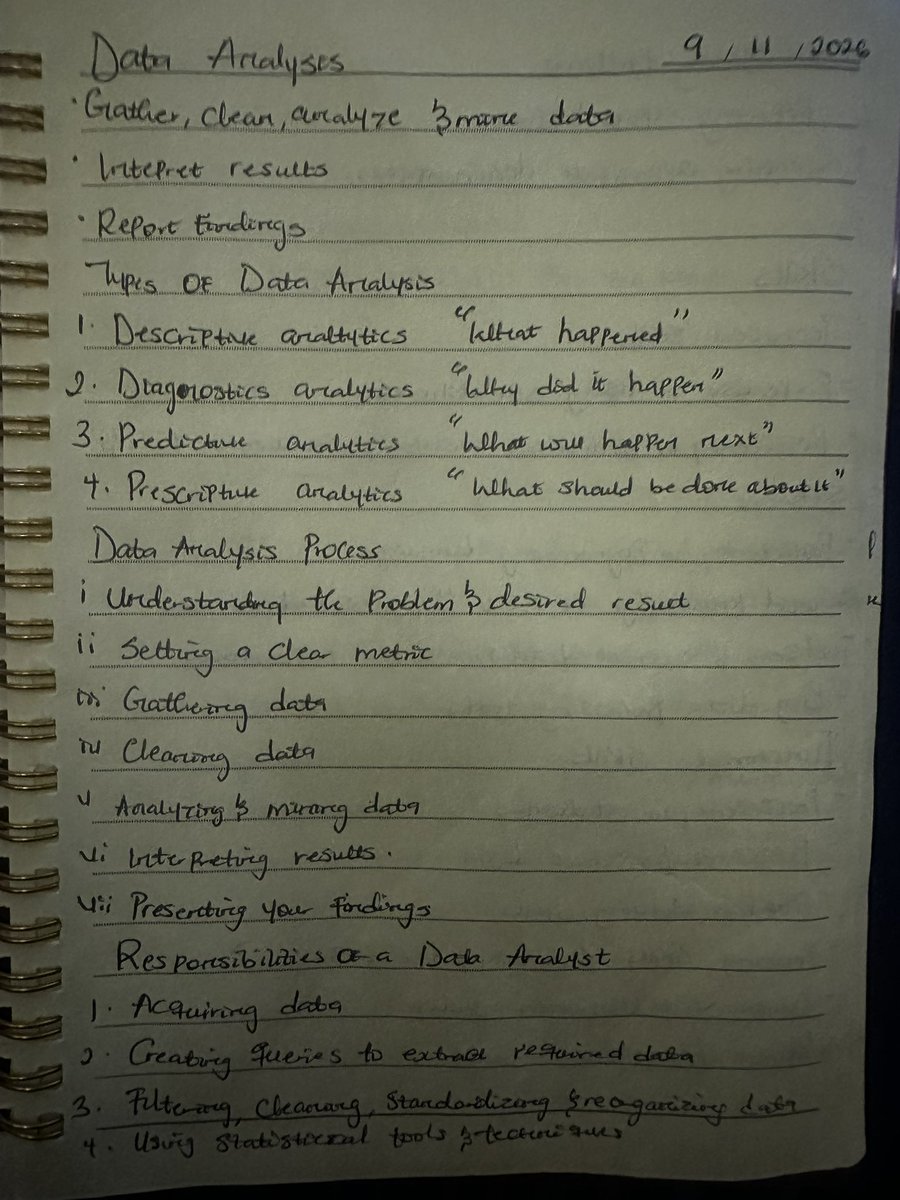 Data Analyses 9 / 11 / 2026
· Gather, clean, analyze & mine data
· Intepret results
· Report Findings
Types OF Data Analysis
1. Descriptive analtytics "What happened"
2. Diagnostics analytics "Why did it happen"
3. Predictive analytics "What will happen next"
4. Prescriptive analytics "What should be done about it"
Data Analysis Process
i Understanding the Problem & desired result
ii Setting a clear metric
iii Gathering data
iv Cleaning data
v Analyzing & mining data
vi Interpreting results.
vii Presenting your findings
Responsibilities OF a Data Analyst
1. Acquiring data
2. Creating queries to extract required data
3. Filtering, cleaning, standardizing & reoganizing data
4. Using statistical tools & techniques